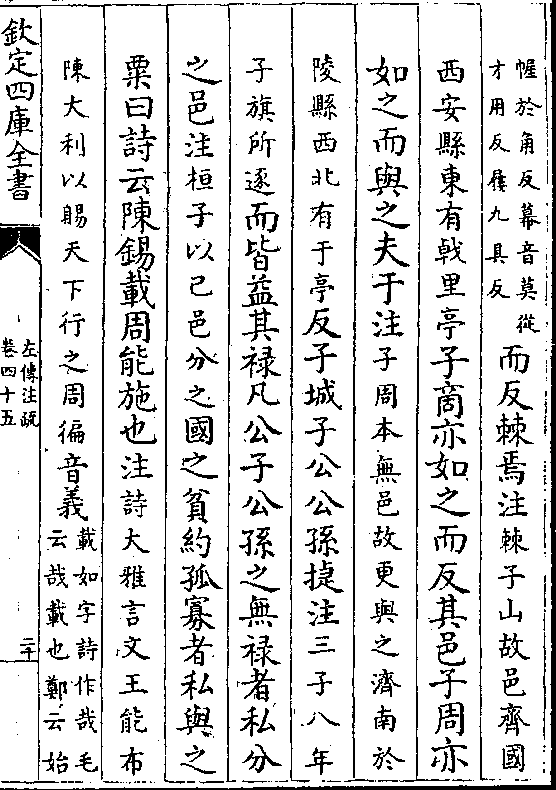 幄於角反幕音莫從
才用反屨九具反
而反棘焉注棘子山故邑齊國
西安縣東有戟里亭子商亦如之而反其邑子周亦
如之而與之夫于注子周本無邑故更與之濟南於
陵縣西北有于亭反子城子公公孫捷注三子八年
子旗所逐而皆益其禄凡公子公孫之無禄者私分
之邑注桓子以己邑分之國之貧約孤寡者私與之
粟曰詩云陳錫載周能施也注詩大雅言文王能布
陳大利以賜天下行之周徧音義
載如字詩作哉毛
云哉載也鄭云始
欽定四庫全書
左傳注疏
卷四十五
二十